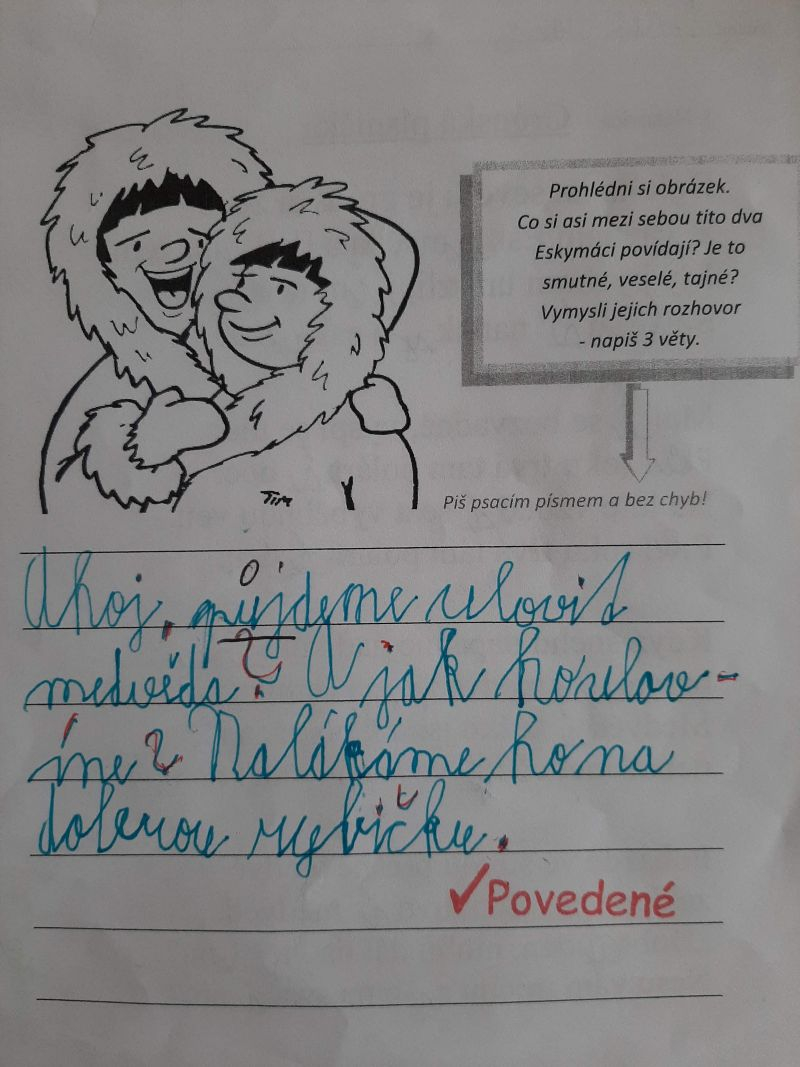 Prohlédni si obrázek.
Co si asi mezi sebou tito dva
Eskymáci povídají? Je to
smutné, veselé, tajné?
Vymysli jejich rozhovor
- napiš 3 věty.
Tim
Piš psacím písmem a bez chyb!
Ahoj, půjdeme ulovit
medvěda? A jak ho ulov-
íme? Nalákáme ho na
dobrou rybičku.
✓Povedené